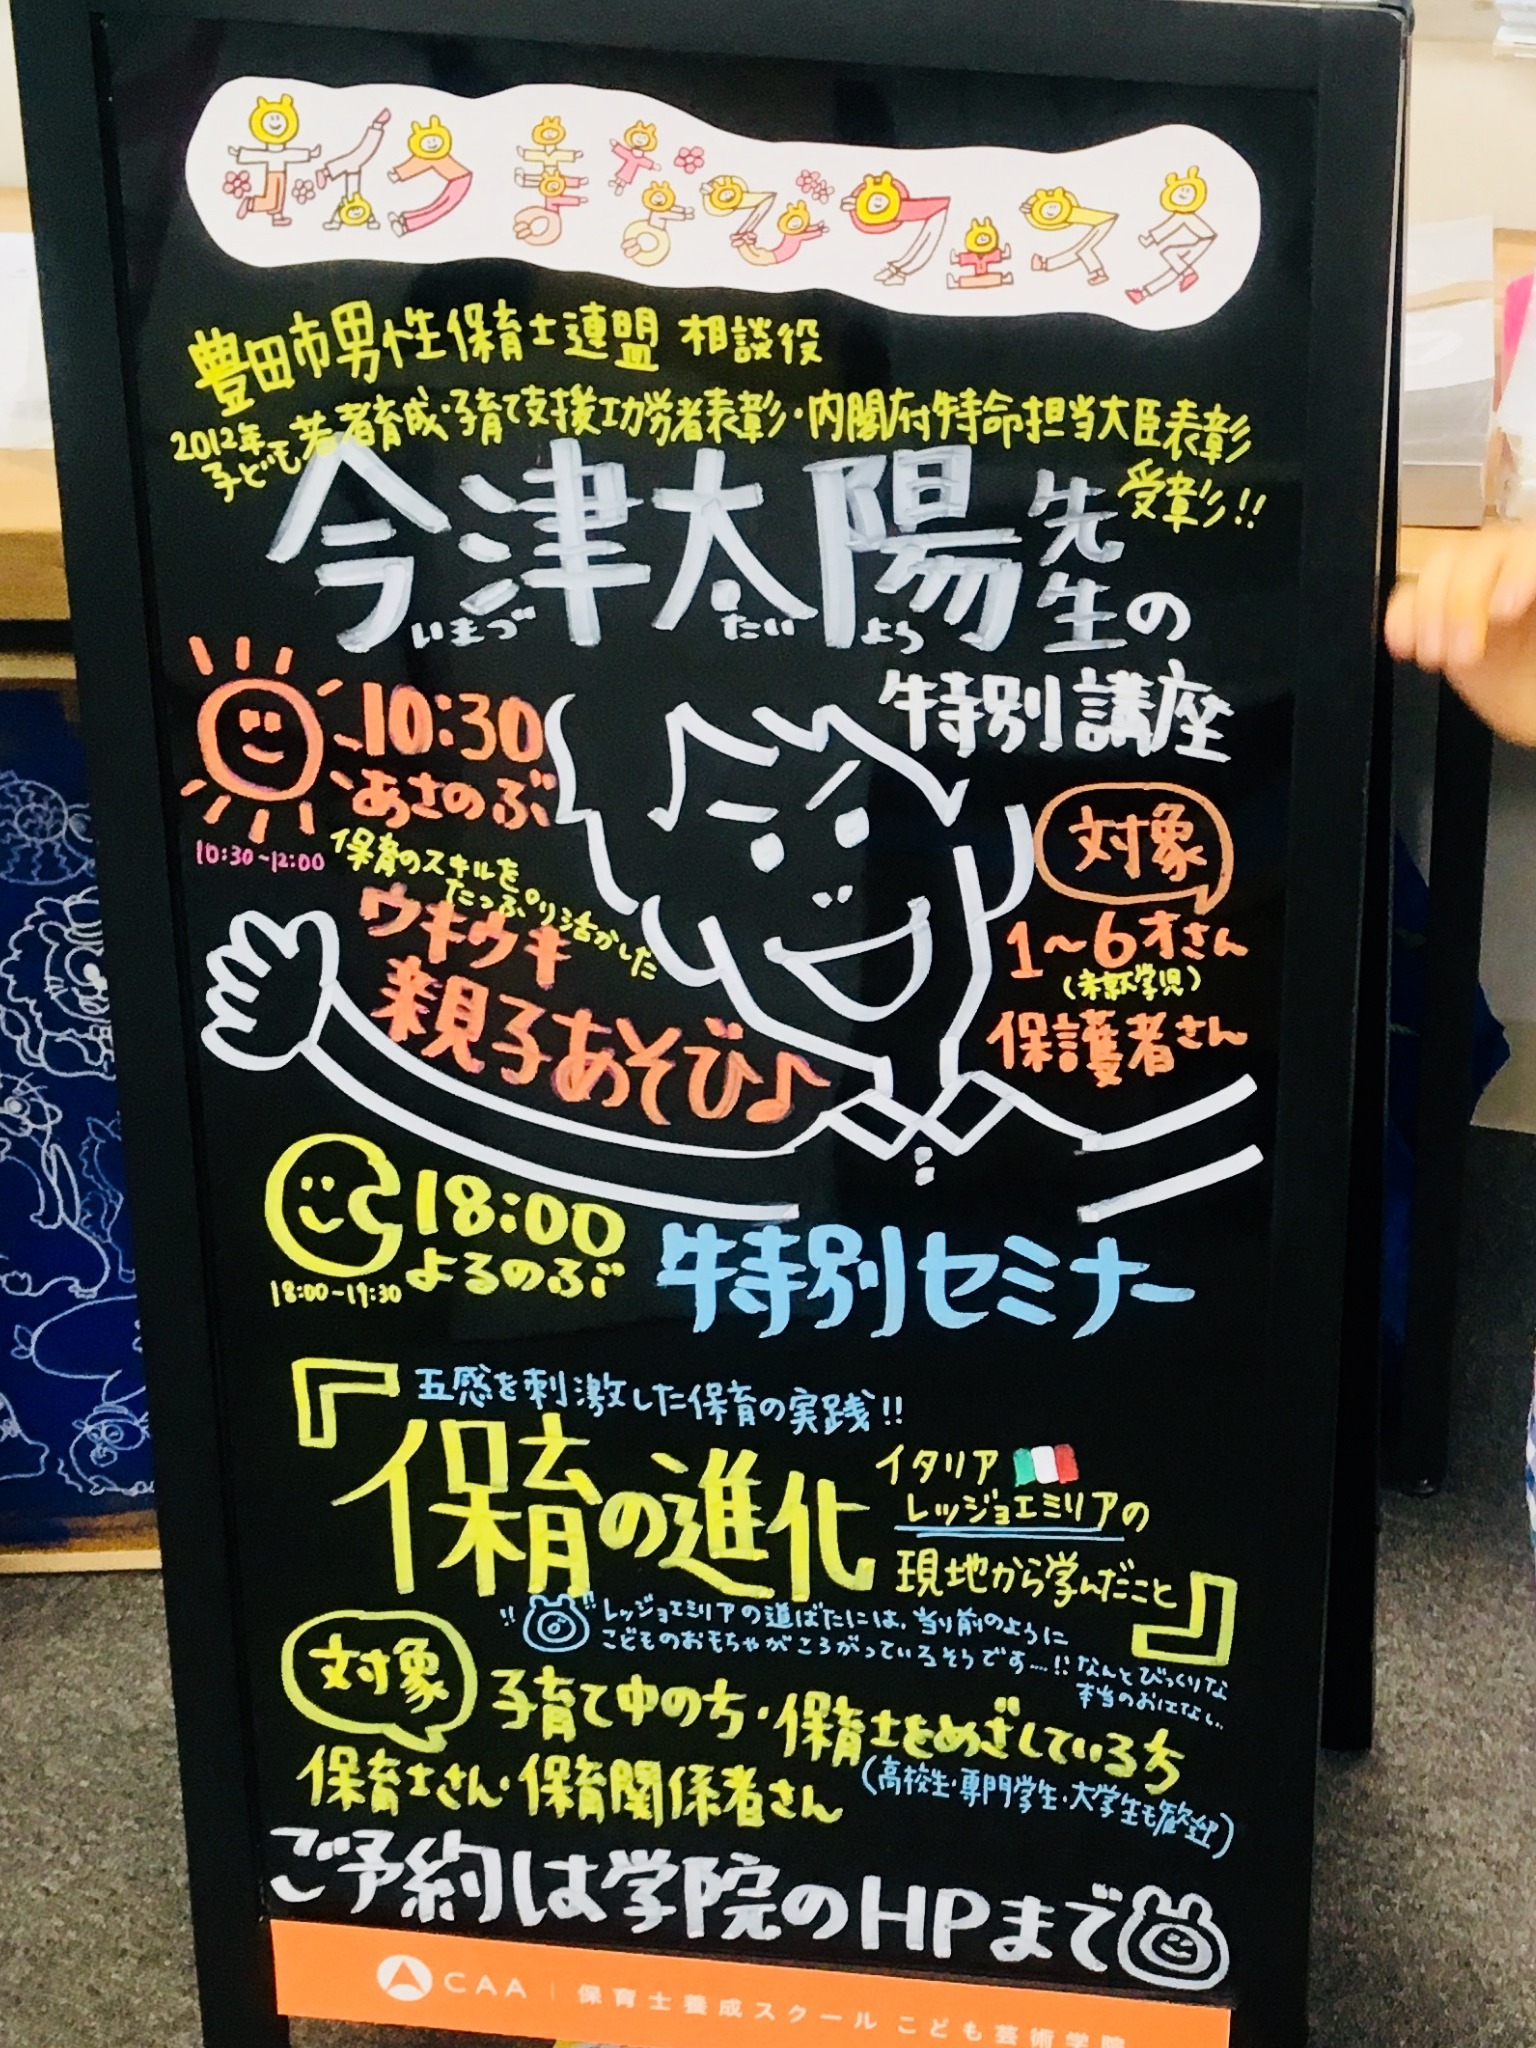 ホイクまなびフェスタ
豊田市男性保育士連盟 相談役
2012年 子ども若者育成・子育て支援功労者表彰・内閣府特命担当大臣表彰
受彰!!
今津太陽先生の
いまづ たい よう
特別講座
10:30
あさのぶ
10:30~12:00
保育のスキルを
たっぷり活かした
ウキウキ
親子あそび♪
対象
1~6才さん
(未就学児)
保護者さん
18:00
よるのぶ
18:00-19:30
特別セミナー
『五感を刺激した保育の実践!!
保育の進化
イタリア
レッジョエミリアの
現地から学んだこと』
!! !! レッジョエミリアの道ばたには、当り前のように
こどものおもちゃがころがっているそうです....!! なんとびっくりな
本当のおはなし..
対象
子育て中の方・保育士をめざしている方
(高校生・専門学生・大学生も歓迎)
保育士さん・保育関係者さん
ご予約は学院のHPまで
CAA | 保育士養成スクール こども芸術学院